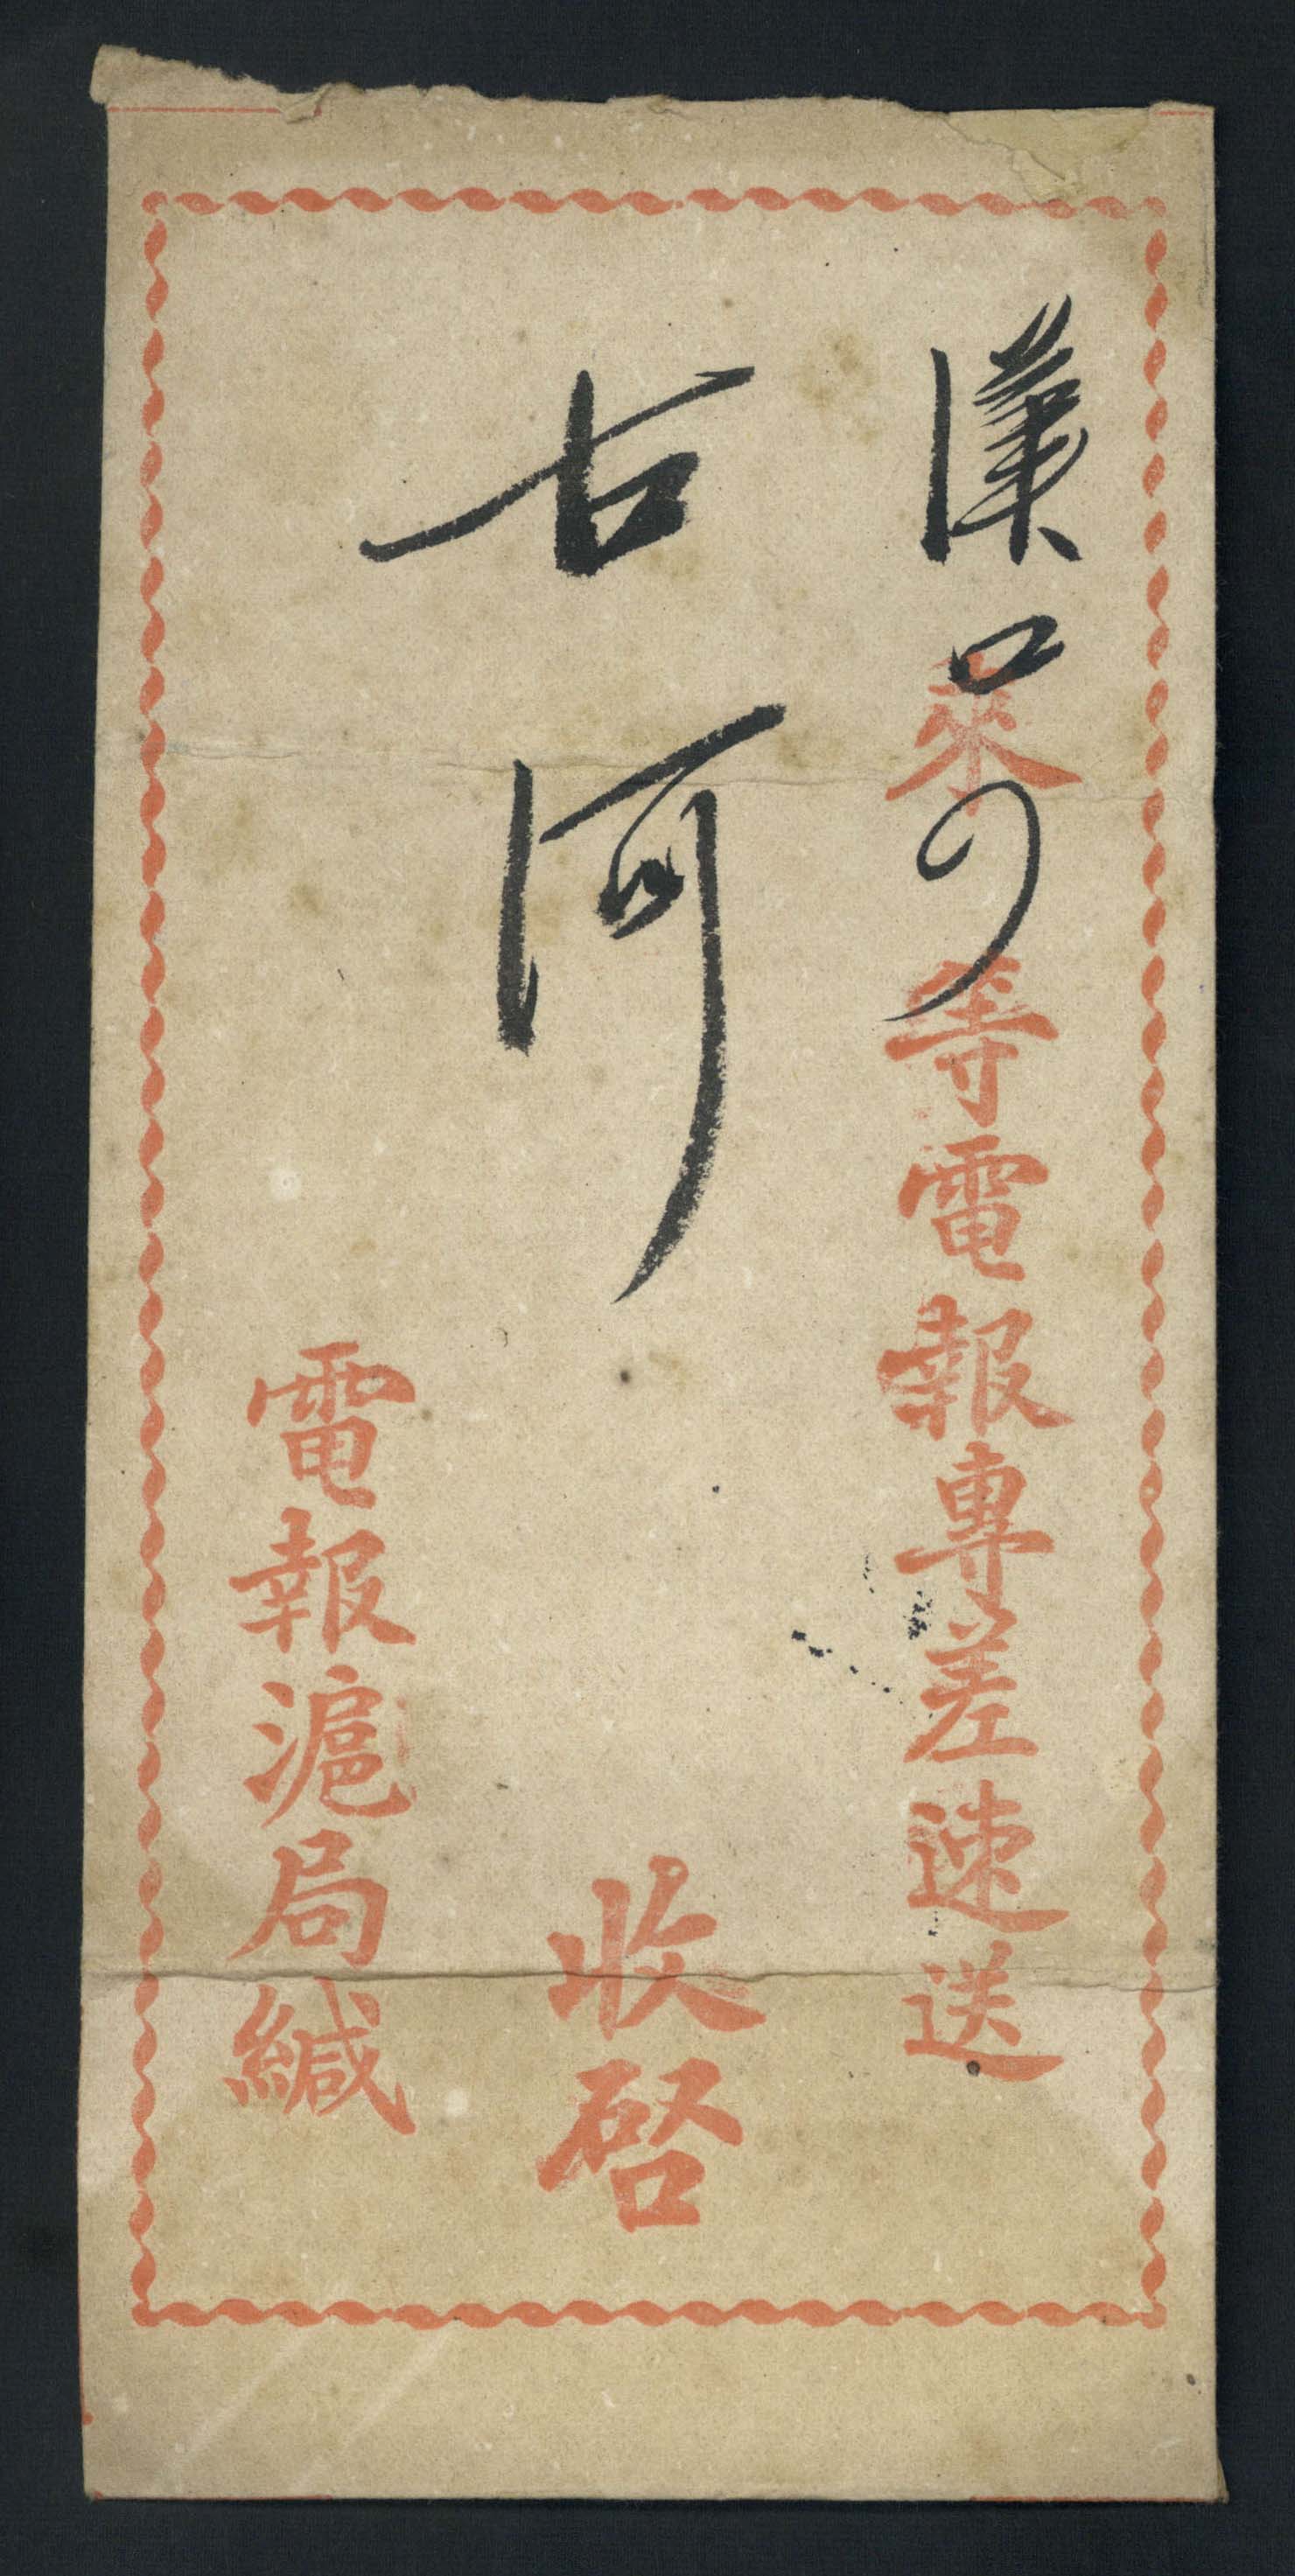 漢口來四等電報專差速送
古河
收啓
電報滬局緘